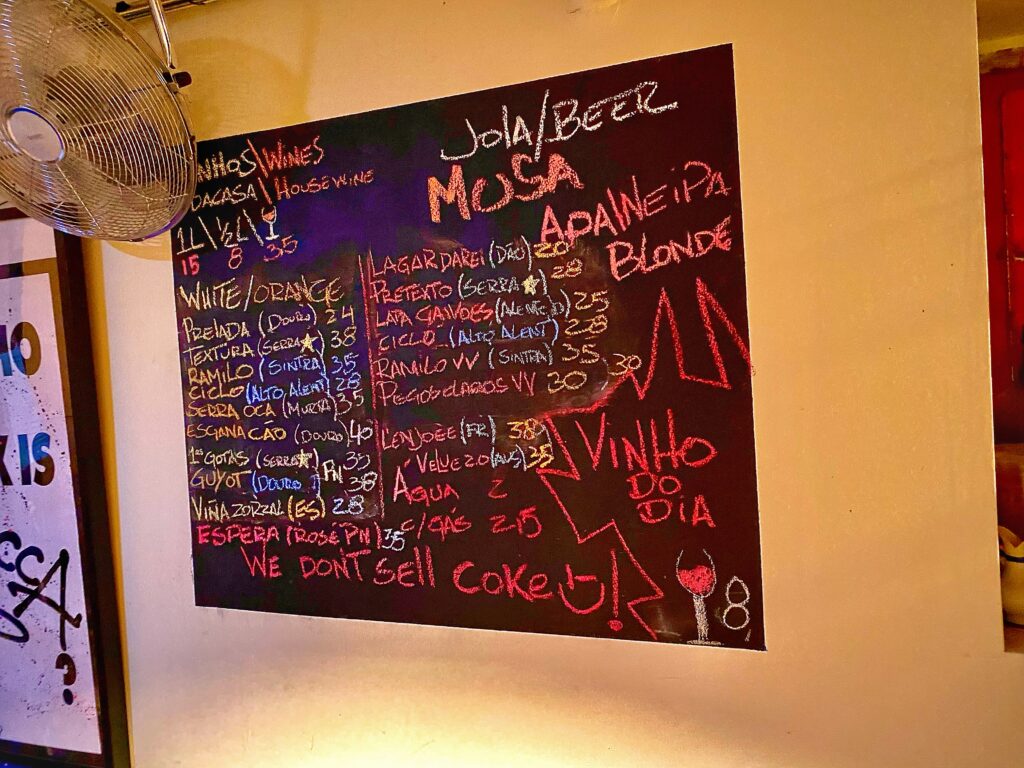 NHOS\WINES
DACASA\HOUSEWINE
1L\½L\
15 8 3.5
WHITE/ORANGE
PRELADA (DOURO) 24
TEXTURA (SERRA★) 38
RAMILO (SINTRA) 35
CICLO (ALTO ALENT) 28
SERRA OCA (MURTA) 35
ESGANA CAO (DOURO) 40
1as GOTAS (SERRA★) 35
GUYOT (DOURO) PN 38
VIÑA ZORZAL (ES) 28
ESPERA (ROSÉ PN) 35
JOLA/BEER
MUSA
APA\NEiPA
BLONDE
LAGAR DAREI (DÃO) 20
PRETEXTO (SERRA★) 28
LAPA GAIVOES (ALENTEJO) 25
CICLO (ALTO ALENT) 28
RAMILO VV (SINTRA) 35
VV 30
30
L'ENJOÉE (FR) 38
VELUE 2.0 (AUS) 35
ÁGUA 2
C/GÁS 2.5
WE DON'T SELL COKE !
VINHO
DO
DIA
8
HO
K IS
?